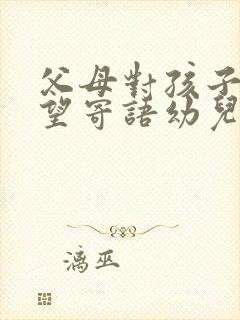 父母對孩子
望寄語幼兒
漓巫